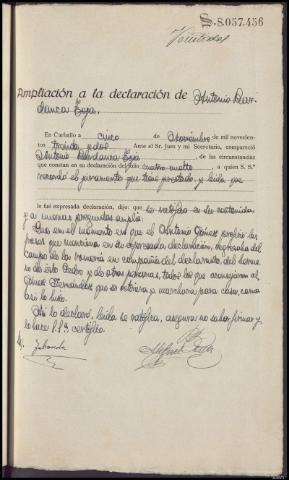 S.8.057.456
Ampliación a la declaración de Antonio Bar-
danca Eoja.
En Carballo a cinco de Noviembre de mil novecien-
tos treinta y dos Ante el Sr. Juez y mi Secretario, compareció
Antonio Bardanca Eoja de circunstancias
que constan en su declaración del folio cuatro vuelto a quien S. Sª
recordó el juramento que tiene prestado, y leída que
le fué expresada declaración, dijo: que se ratifica en su contenido
y a nuevas preguntas amplía:
Que en el momento en que el Antonio Gómez profirió las
frases que menciona en su expresada declaración, regresaba del
campo de la romería en compañía del declarante, del herma
no de éste Pedro y de otras personas, todos los que aconsejaron al
Gómez Fernández que se retirara y marchara para casa, como
así lo hizo.
Así lo declaró, leída se ratifica, asegura no saber firmar y
lo hace S.S. certifico.